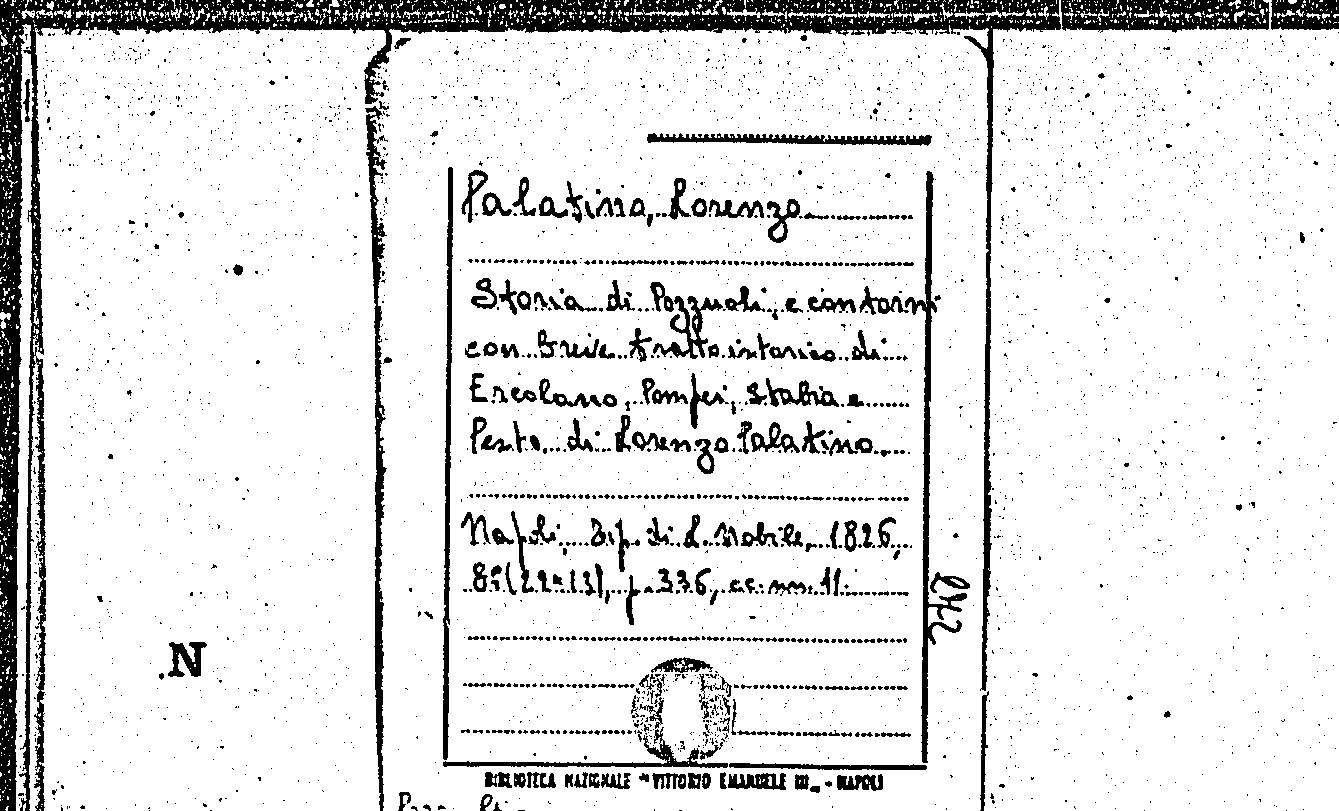 Palatino, Lorenzo
Storia di Pozzuoli, e contorni
con breve tratto istorico di
Ercolano, Pompei, Stabia e
Pesto di Lorenzo Palatino.
Napoli, Tip. di L. Nobile, 1826,
8°(22×13), p. 336, cc. nn. 11.
.N
BIBLIOTECA NAZIONALE "VITTORIO EMANUELE III„ - NAPOLI